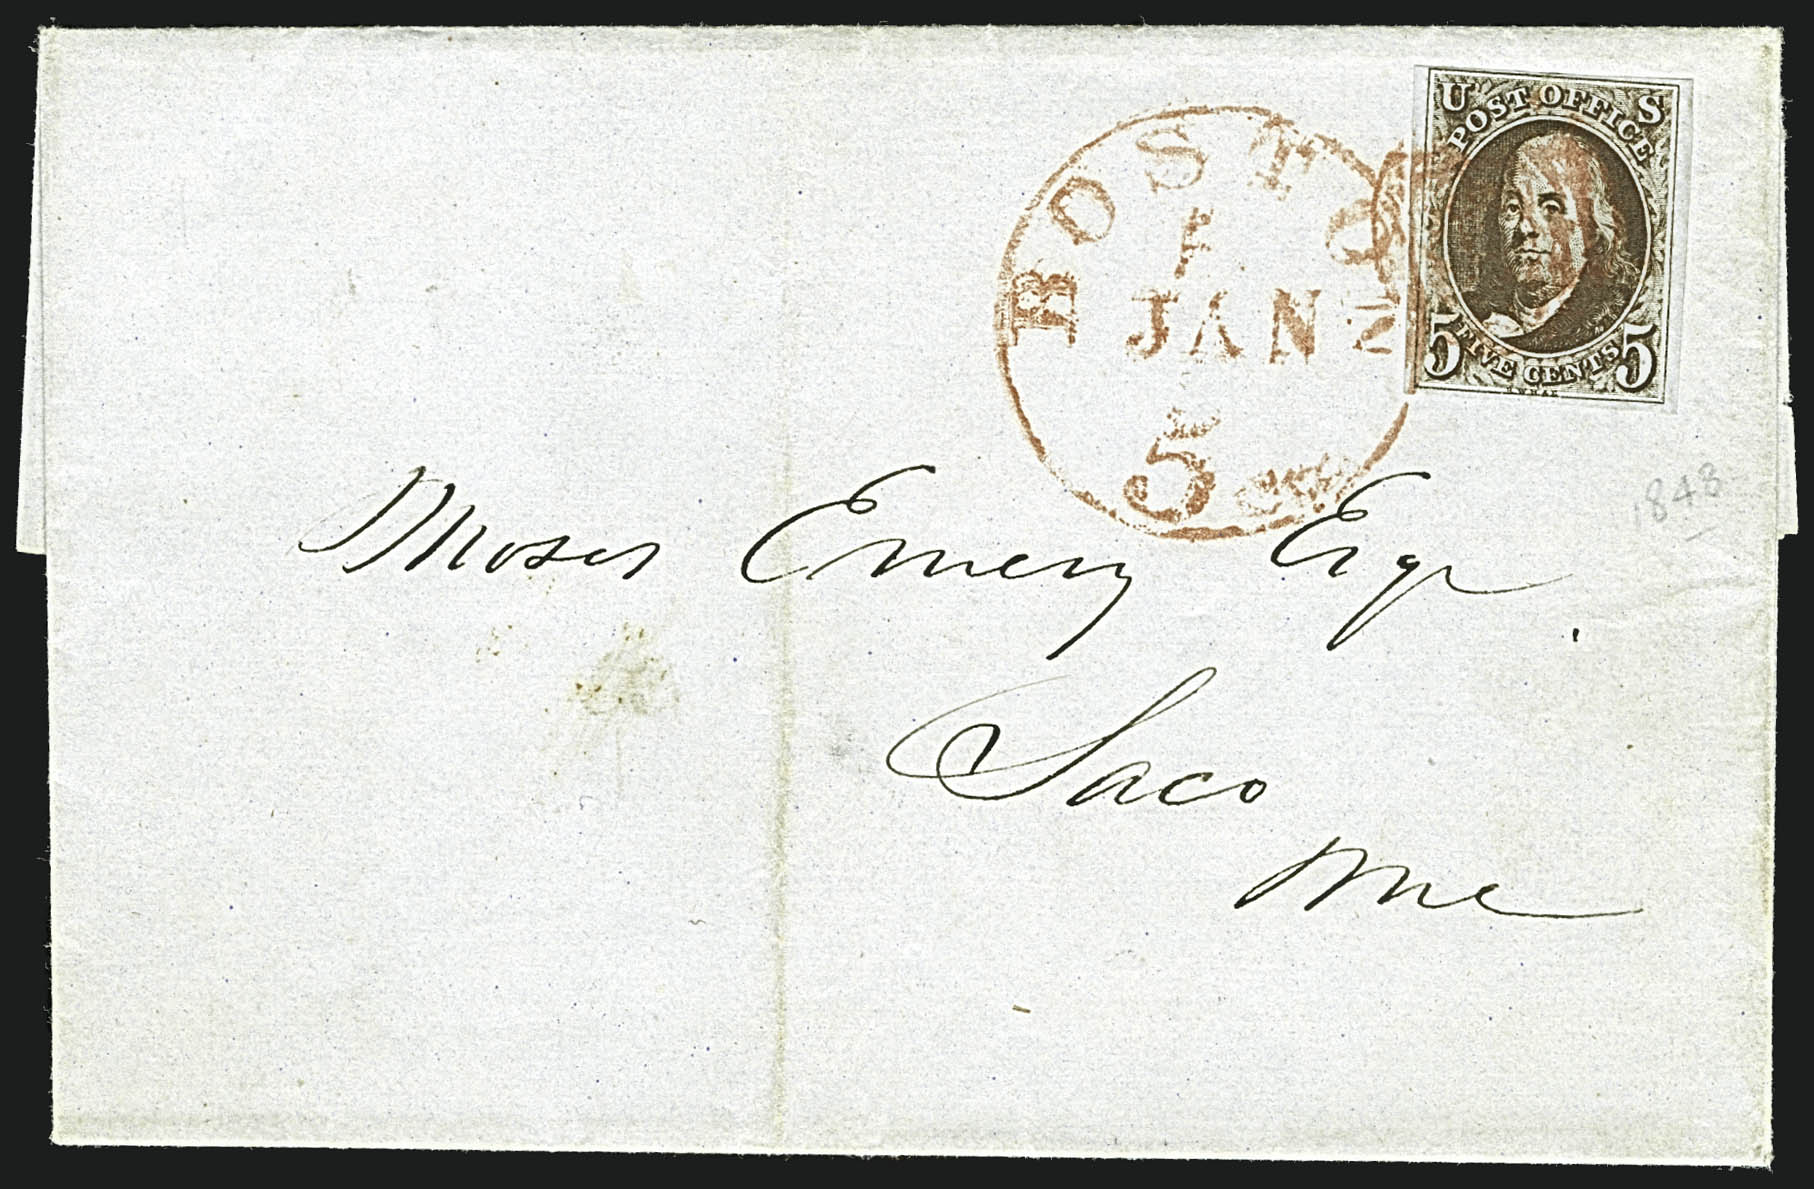 U S
POST OFFICE
5 FIVE CENTS 5
BOSTON
1
JAN
5 cts
1848
Moses Emery Esqr
Saco
Me